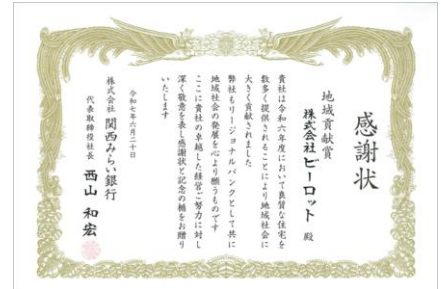 感謝状
地域貢献賞
株式会社ビーロット 殿
貴社は令和六年度において良質な住宅を
数多く提供されることにより地域社会に
大きく貢献されました
弊社もリージョナルバンクとして共に
地域社会の発展を心より願うものです
ここに貴社の卓越した経営ご努力に対し
深く敬意を表し感謝状と記念の楯をお贈り
いたします
令和七年六月二十日
株式会社 関西みらい銀行
代表取締役社長 西山 和宏